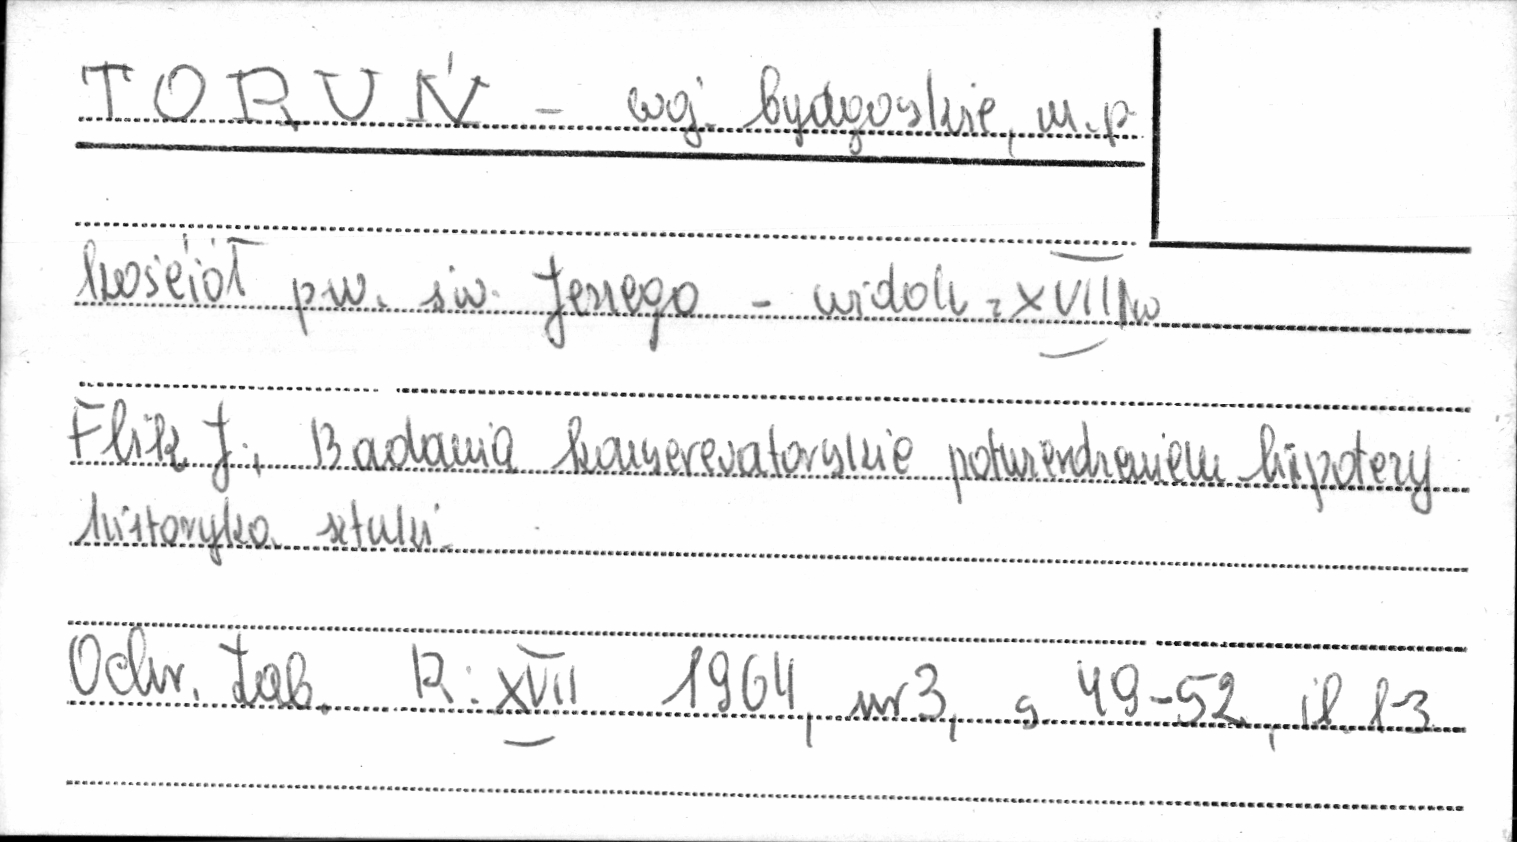 TORUŃ - woj. bydgoskie, m.p.
kościół p.w. św. Jerzego - widok z XVIII w
Flik J., Badania konserwatorskie potwierdzeniem hipotezy
historyka sztuki.
Ochr. Zab. R: XVII 1964, nr 3, s 49-52, il. 1-3